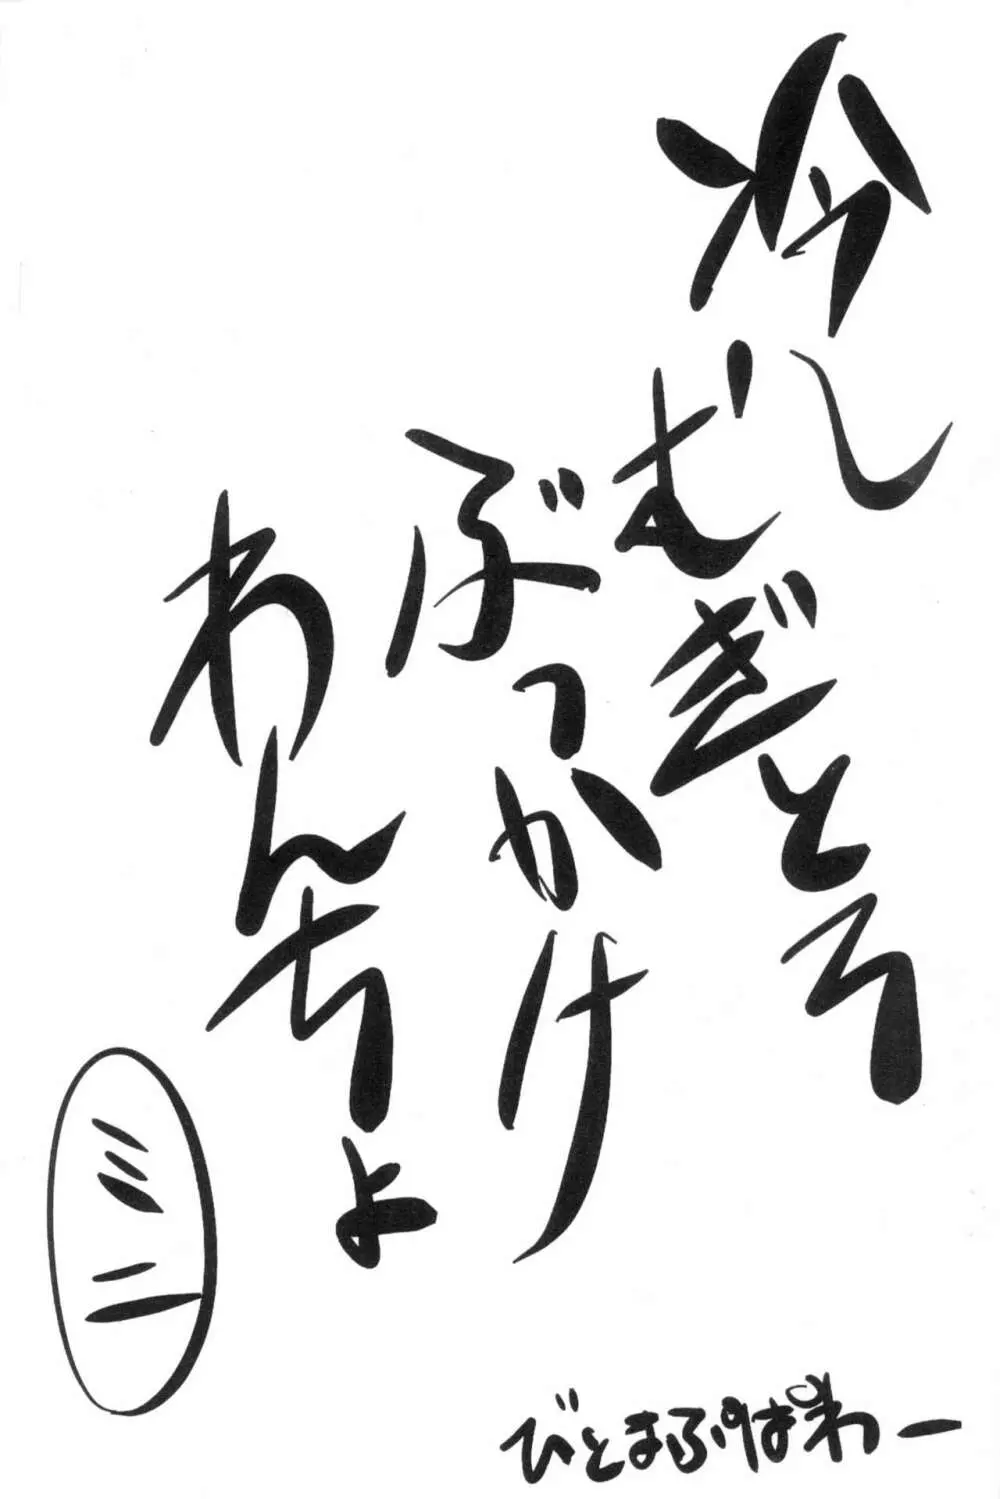 冷し
むぎとろ
ぶっかけ
わんちょ
ミニ
びとまっぷぱわー